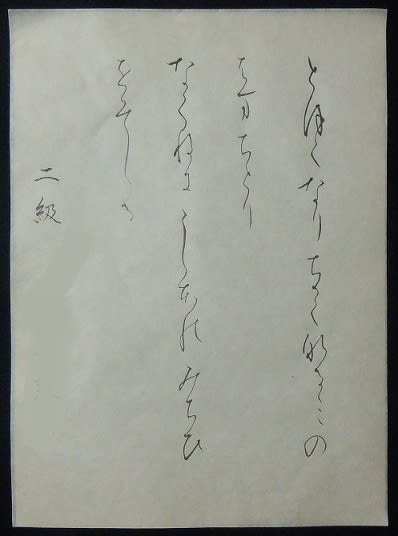 とほくなりちかくなるみの
はまちとり
なくねにしほのみちひ
をそしる
二級